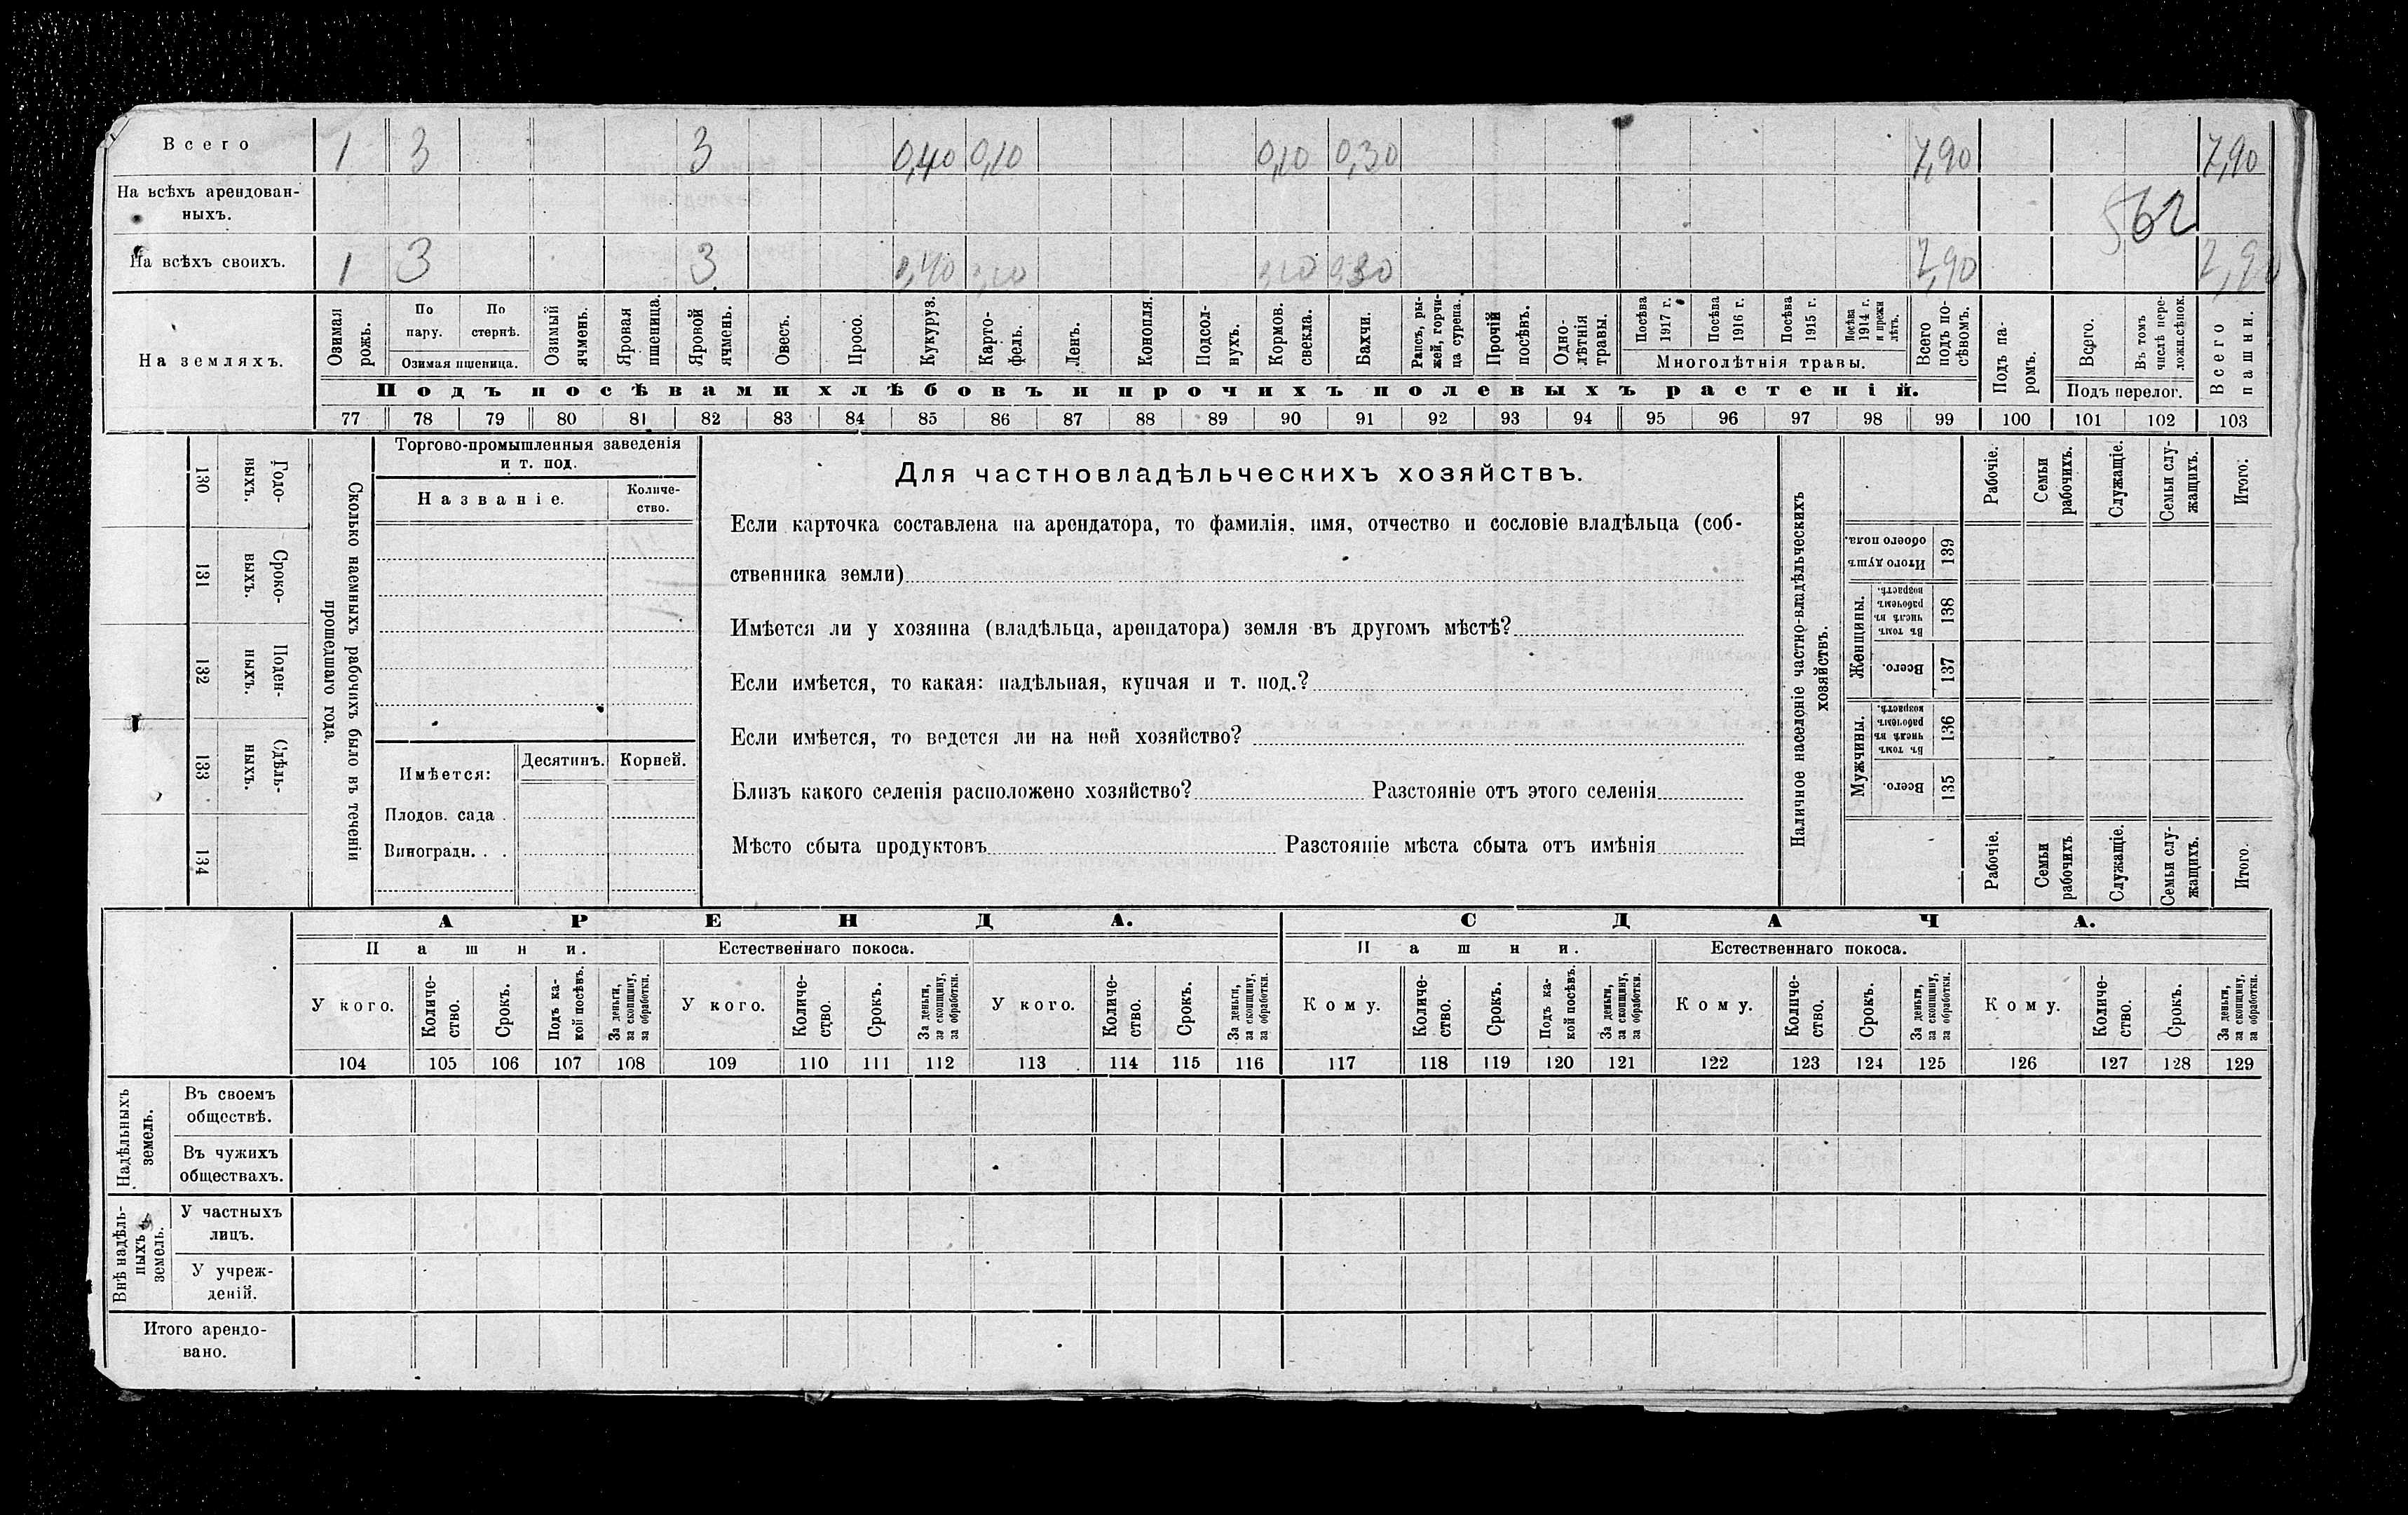 Всего 1 3 3 0,40 0,10 0,10 0,30 7,90 7,90
На всѣхъ арендован-
ныхъ.
562
На всѣхъ своихъ. 1 3 3 0,40 0,10 0,10 0,30 7,90 7,90
На земляхъ.
Озимая рожь.
По пару.
По стернѣ.
Озимая пшеница.
Озимый ячмень.
Яровая пшеница.
Яровой ячмень.
Овесъ.
Просо.
Кукуруз.
Карто-
фель.
Ленъ.
Конопля.
Подсол-
нухъ.
Кормов. свекла.
Бахчи.
Рапсъ, ры-
жей, горчи-
ца сурепа.
Прочій посѣвъ.
Одно-
лѣтнія травы.
Посѣва 1917 г.
Посѣва 1916 г.
Посѣва 1915 г.
Посѣва 1914 г. и прежн лѣтъ.
Многолѣтнія травы.
Всего подъ по-
сѣвомъ.
Подъ па-
ромъ.
Всего.
Въ томъ числѣ пере-
ложн.сѣнок.
Подъ перелог.
Всего пашни.
Подъ посѣвами хлѣбовъ и прочихъ полевыхъ растеній.
77 78 79 80 81 82 83 84 85 86 87 88 89 90 91 92 93 94 95 96 97 98 99 100 101 102 103
130 Годо-
выхъ.
131 Сроко-
выхъ.
132 Поден-
ныхъ.
133 Сдѣль-
ныхъ.
134
Сколько наемныхъ рабочихъ было въ теченіи
прошедшаго года.
Торгово-промышленныя заведенія
и т. под.
Названіе.
Количе-
ство.
Имѣется:
Десятинъ. Корней.
Плодов. сада .
Виноградн. . .
Для частновладѣльческихъ хозяйствъ.
Если карточка составлена на арендатора, то фамилія, имя, отчество и сословіе владѣльца (соб-
ственника земли)
Имѣется ли у хозяина (владѣльца, арендатора) земля въ другомъ мѣстѣ?
Если имѣется, то какая: надѣльная, купчая и т. под.?
Если имѣется, то ведется ли на ней хозяйство?
Близъ какого селенія расположено хозяйство? Разстояніе отъ этого селенія
Мѣсто сбыта продуктовъ Разстояніе мѣста сбыта отъ имѣнія
Наличное населеніе частно-владѣльческихъ
хозяйствъ.
Рабочіе.
Семьи рабочихъ.
Служащіе.
Семьи слу-
жащихъ.
Итого.
Итого душъ обоего пола. 139
Женщины.
Въ томъ числѣ въ рабочемъ возрастѣ. 138
Всего. 137
Мужчины.
Въ томъ числѣ въ рабочемъ возрастѣ. 136
Всего. 135
Рабочіе.
Семьи рабочихъ
Служащіе.
Семьи слу-
жащихъ.
Итого.
АРЕНДА. СДАЧА.
Пашни. Естественнаго покоса. Пашни. Естественнаго покоса.
У кого.
Количе-
ство.
Срокъ.
Подъ ка-
кой посѣвъ.
За деньги,
за скопщину,
за обработки.
У кого.
Количе-
ство.
Срокъ.
За деньги,
за скопщину,
за обработки.
У кого.
Количе-
ство.
Срокъ.
За деньги,
за скопщину,
за обработки.
Кому.
Количе-
ство.
Срокъ.
Подъ ка-
кой посѣвъ.
За деньги,
за скопщину,
за обработки.
Кому.
Количе-
ство.
Срокъ.
За деньги,
за скопщину,
за обработки.
Кому.
Количе-
ство.
Срокъ.
За деньги,
за скопщину,
за обработки.
104 105 106 107 108 109 110 111 112 113 114 115 116 117 118 119 120 121 122 123 124 125 126 127 128 129
Надѣльныхъ
земель.
Въ своемъ
обществѣ.
Въ чужихъ
обществахъ.
Внѣ надѣль-
ныхъ
земель.
У частныхъ
лицъ.
У учреж-
деній.
Итого арендо-
вано.